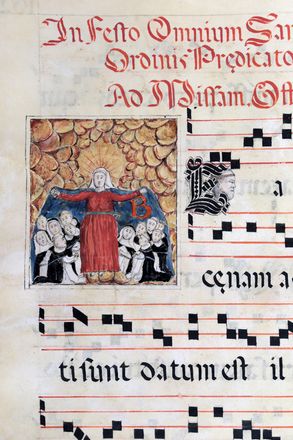 In Festo Omnium San
Ordinis Prędicato
Ad Missam. Off
B a
cęnam a
ti sunt datum est il